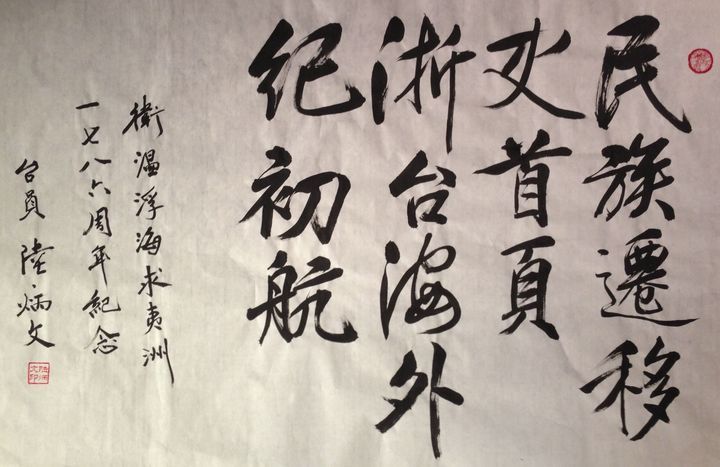 民族遷移
史首頁
浙台海外
紀初航
衛溫浮海求夷洲
一七八六周年紀念
台員 陸炳文